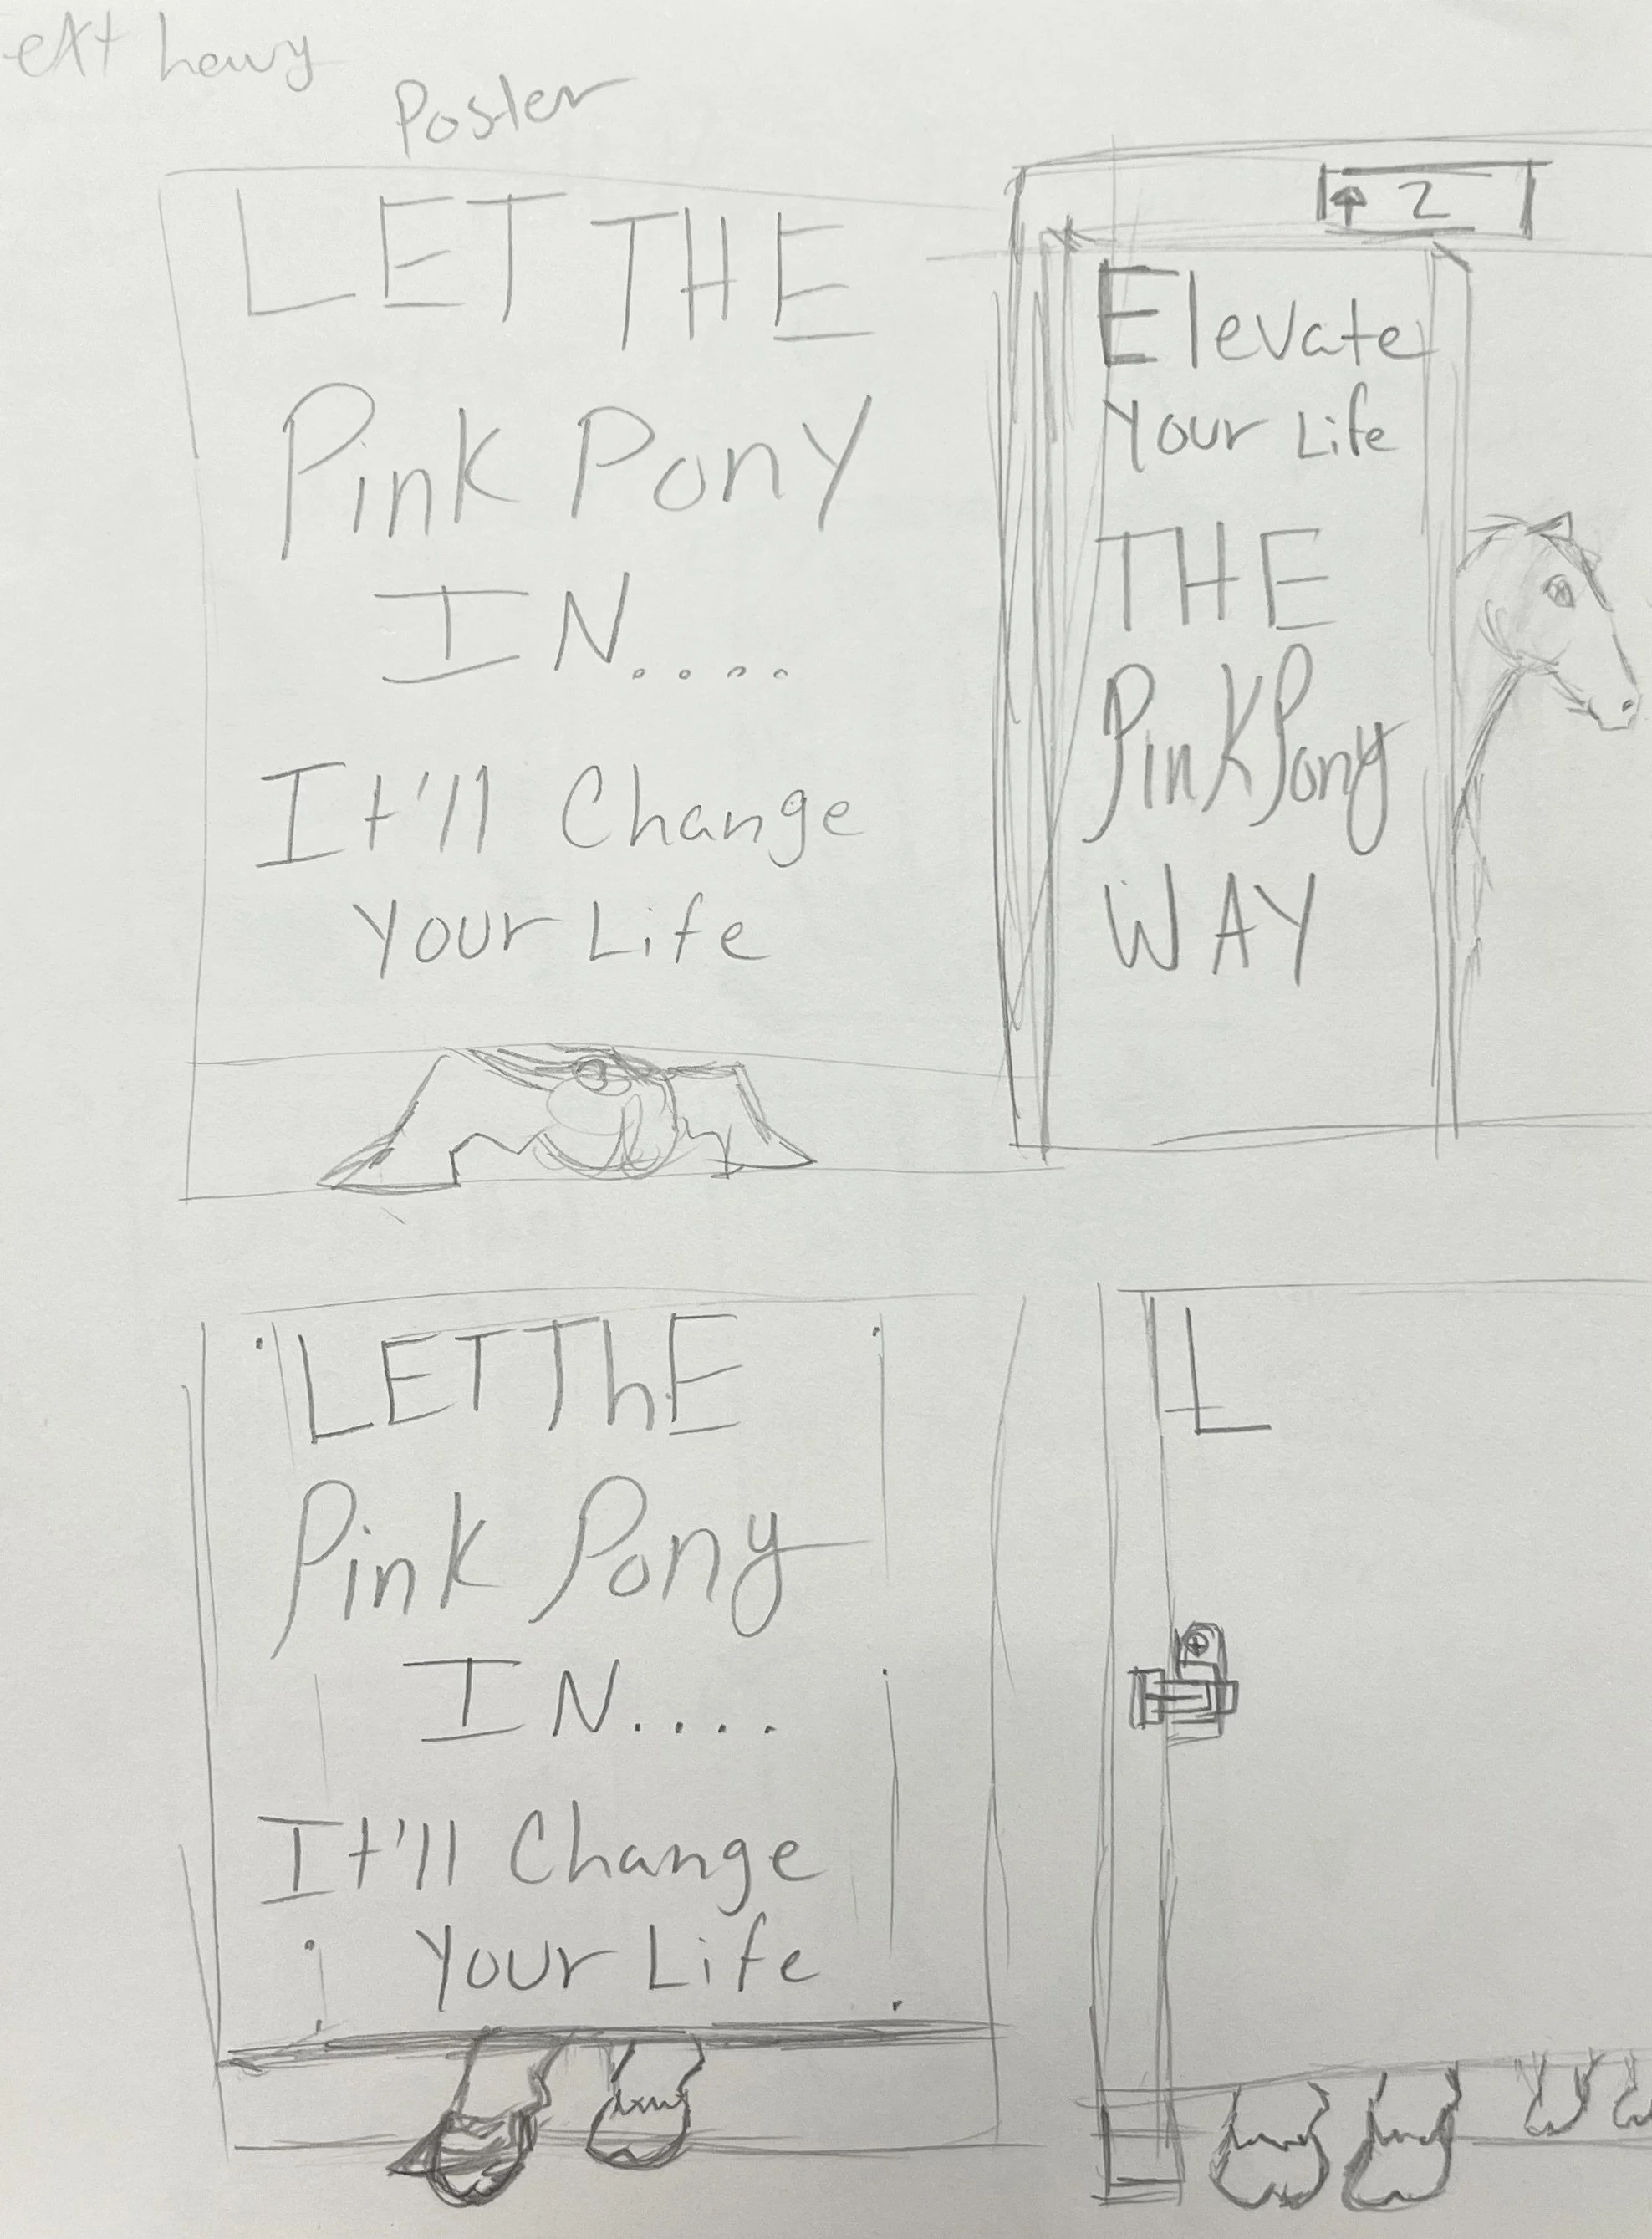 Poster
LET THE
Pink Pony
IN....
It'll Change
Your Life
2
Elevate
Your Life
THE
Pink Pony
WAY
LET ThE
Pink Pony
IN....
It'll Change
Your Life
L